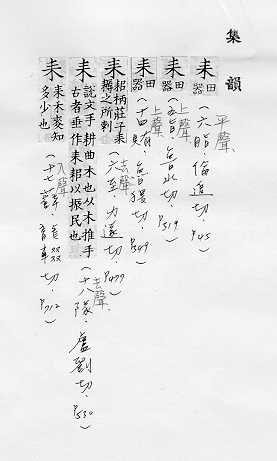 集韻
耒 田器 (六脂倫追切. P45) 平聲
耒 田器 (五旨魯水切. P319) 上聲
耒 田器 (十四賄. 魯猥切. P349) 上聲
耒 耜柄莊子耒耨之所刺 (六至. 力遂切. P477) 去聲
耒 說文手耕曲木也从木推手古者垂作耒耜以振民也 (十八隊. 盧對切. P530) 去聲
耒 耒木麥知多少也 (十七 切. P712) 入聲